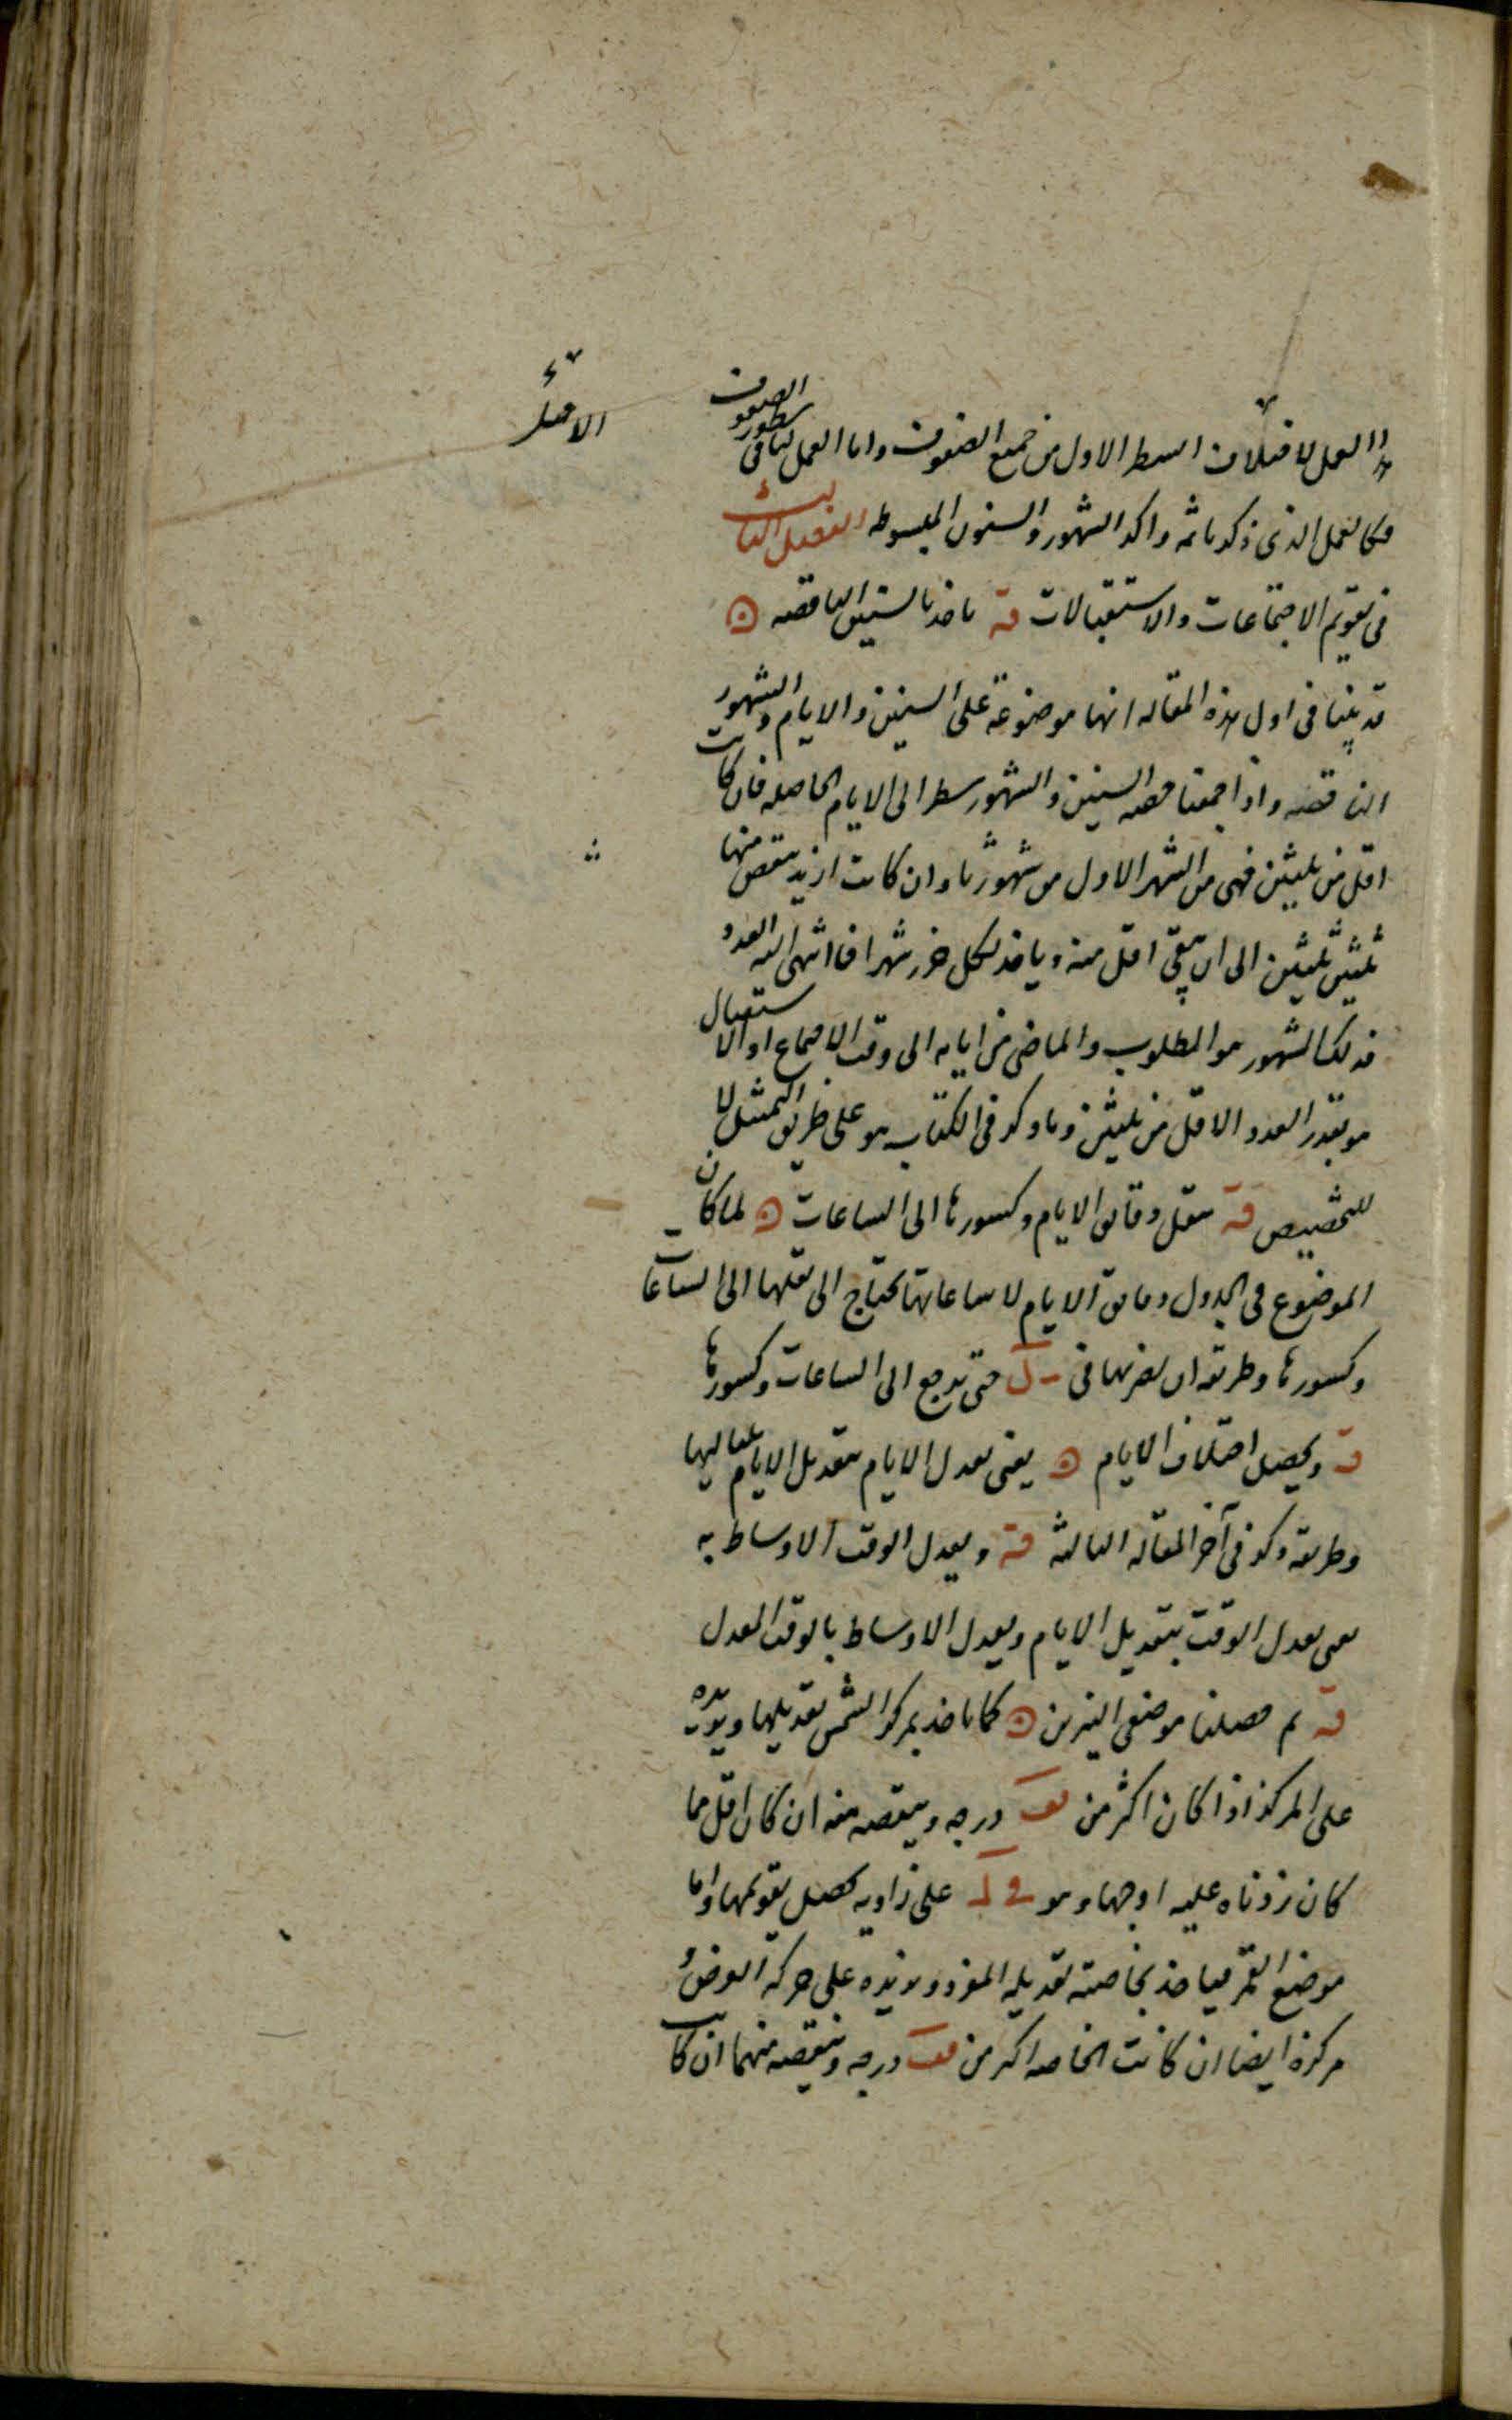 هذا العمل لاختلاف السطر الاول من جميع الصفوف واما العمل لباقى سطور الصفوف
فكالعمل الذى ذكرناثمه واكد الشهور والسنون المبسوطه الفصل الثالث
فى تقويم الاجتماعات والاستقبالات قه ناخذ بالسنين الناقصه ۞
قد بينا فى اول هذه المقاله انها موضوعة على السنين والايام والشهور
الناقصه واذا جمعنا حصه السنين والشهور سطر الى الايام الحاصله فان كانت
اقل من ثلثين فهى من الشهر الاول من شهورنا وان كانت ازيد ينقص منها
ثلثين ثلثين الى ان يبقى اقل منه وياخذ لكل شهرا فما انتهى اليه العدد
فذلك الشهور هو المطلوب والماضى من ايامه الى وقت الاجتماع او الاستقبال
هو بقدر العدد الاقل من ثلثين وما ذكر فى الكتاب هو على طريق التمثيل لا
للتخصيص قه ننقل دقائق الايام وكسورها الى الساعات ۞ لما كان
الموضوع فى الجدول دقائق الايام لا ساعاتها نحتاج الى نقلها الى الساعات
وكسورها وطريقه ان نضربها فى حتى ترجع الى الساعات وكسورها
قه ونحصل اختلاف الايام ۞ يعنى نعدل الايام بتعديل الايام بلياليها
وطريقه ذكر فى آخر المقاله الثالثه قه ونعدل الوقت الاوساط به
يعنى نعدل الوقت بتعديل الايام ونعدل الاوساط بالوقت المعدل
قه ثم حصلنا موضعى النيرين ۞ كما ناخذ بمركز الشمس تعديلها ونزيده
على المركز اذا كان اكثر من قف درجه وينقصه منه ان كان اقل فما
كان زدناه عليه اوجها وهو على زاويه يحصل تقويمها واما
موضع القمر فياخذ بخاصته تعديله المفرد ونزيده على حركة العرض و
مركزه ايضا ان كانت الخاصه اكثر من قف درجه وينقصه منهما ان كانت